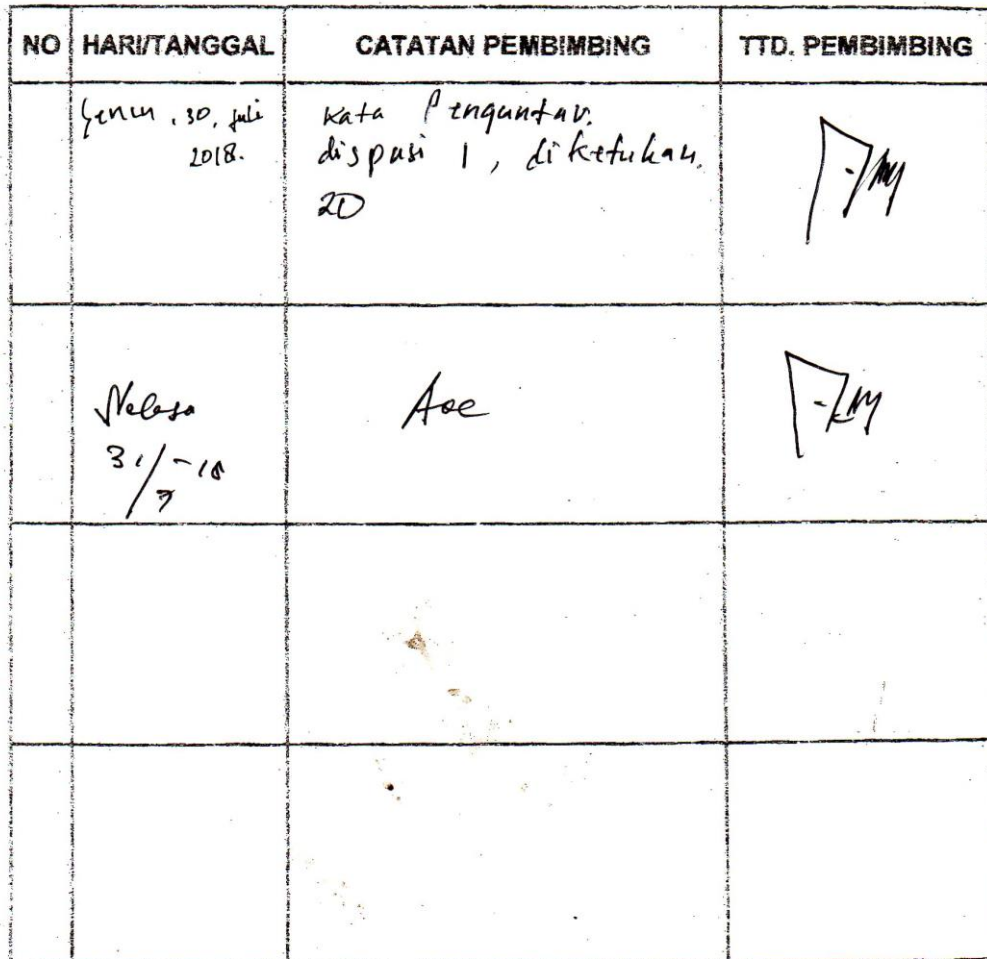 NO HARI/TANGGAL CATATAN PEMBIMBING TTD. PEMBIMBING
Senin, 30, Juli
2018.
Kata Pengantar.
dispasi 1, di ketukan.
2D
Selasa
31/7-18
Acc